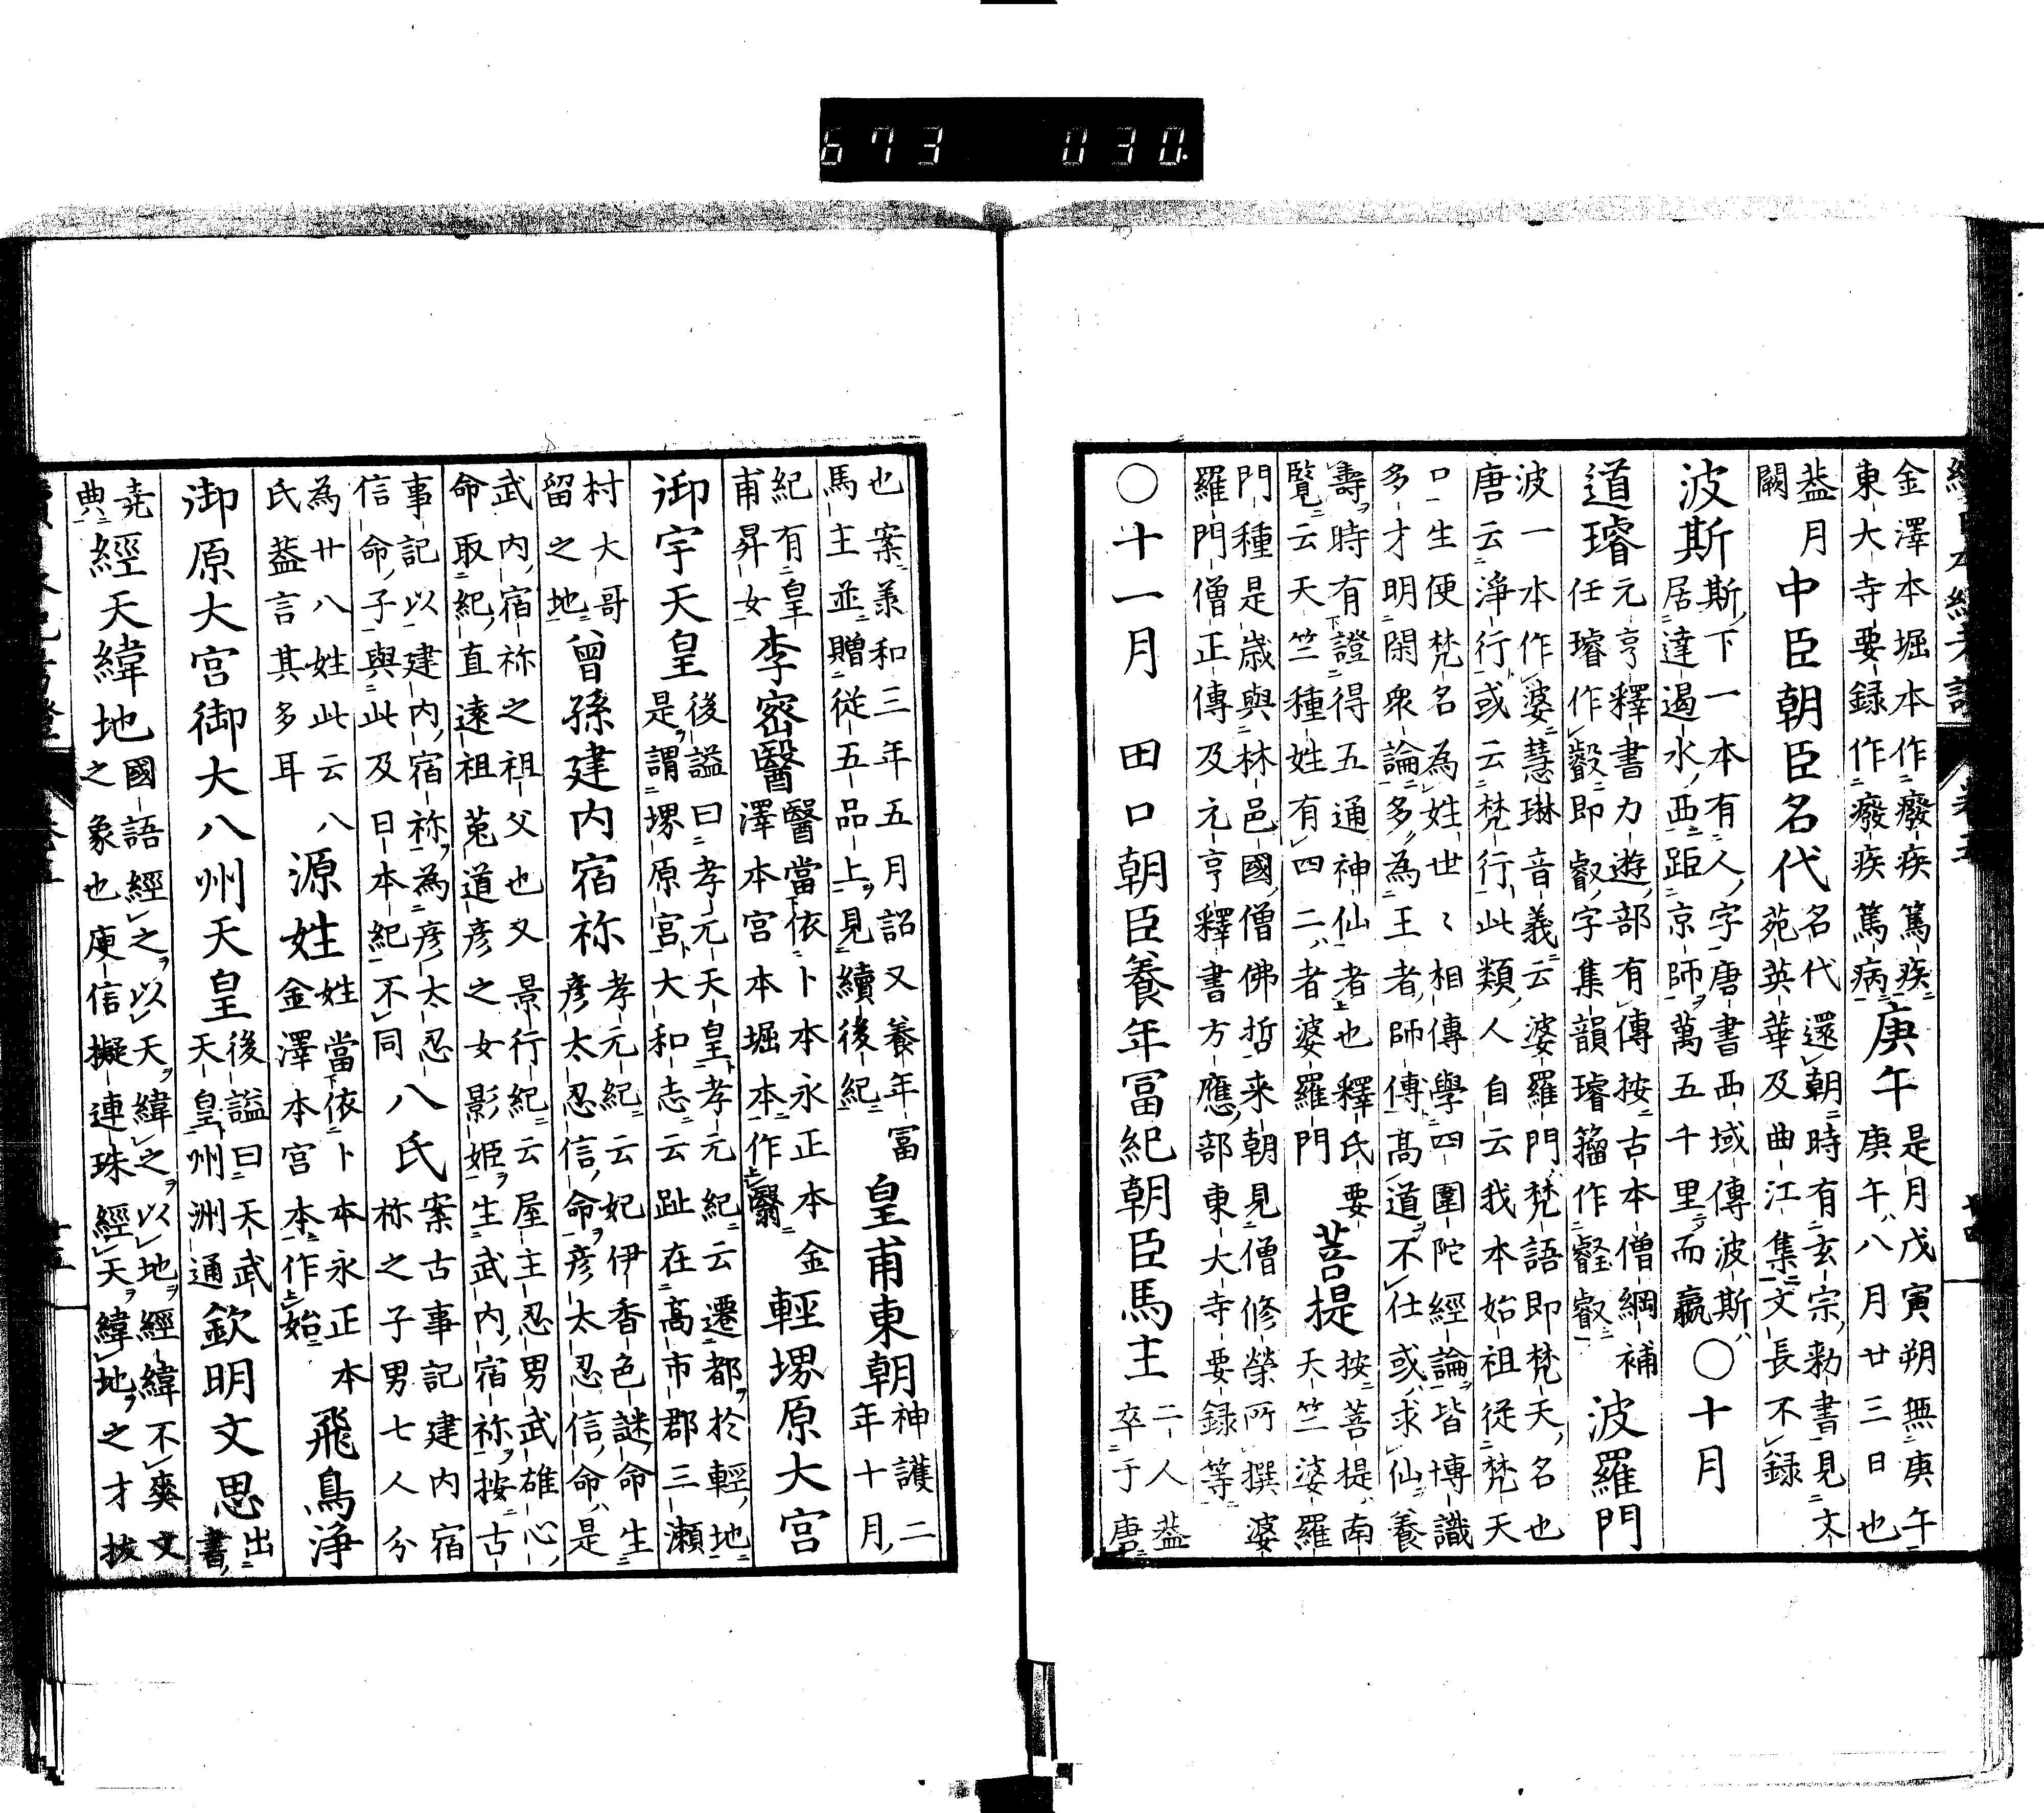 673 030.
金澤本堀本作癈疾篤疾
東大寺要録作癈疾篤病
庚午
是月戊寅朔無庚午
庚午ハ八月廿三日也
葢月
闕
中臣朝臣名代
名代還朝時有玄宗勅書見文
苑英華及曲江集文長不録
波斯
斯下一本有人字唐書西域傳波斯
居達遏水西距京師萬五千里而羸
○十月
道璿
元亨釋書力遊部有傳按古本僧綱補
任璿作叡即叡字集韻璿籀作壡叡
波羅門
波一本作婆慧琳音義云婆羅門梵語即梵天名也
唐云淨行或云梵行此類人自云我本始祖従梵天
口生便梵名為姓世〻相傳學四圍陀經論皆博識
多才明閑衆論多為王者師傳髙道不仕或求仙養
壽時有證得五通神仙者也釋氏要
覽云天竺種姓有四二ハ者婆羅門
菩提
按菩提南
天竺婆羅
門種是歳與林邑國僧佛哲来朝見僧修榮所撰婆
羅門僧正傳及元亨釋書方應部東大寺要録等
○十一月　田口朝臣養年冨紀朝臣馬主
二人葢
卒于唐
也案兼和三年五月詔又養年冨
馬主並贈従五品上見續後紀
皇甫東朝
神護二
年十月
紀有皇
甫昇女
李密醫
醫當依卜本永正本金
澤本宮本堀本作翳
輕堺原大宮
御宇天皇
後謚曰孝元天皇孝元紀云遷都於輕地
是謂堺原宮大和志云趾在髙市郡三瀬
村大哥
留之地
曾孫建内宿祢
孝元紀云妃伊香色謎命生
彦太忍信命彦太忍信命ハ是
武内宿祢之祖父也又景行紀云屋主忍男武雄心
命取紀直遠祖菟道彦之女影姫生武内宿祢按古
事記以建内宿祢為彦太忍
信命子與此及日本紀不同
八氏
案古事記建内宿
祢之子男七人分
為廿八姓此云八
氏葢言其多耳
源姓
姓當依卜本永正本
金澤本宮本作始
飛鳥浄
御原大宮御大八州天皇
後謚曰天武
天皇州洲通
欽明文思
出書
堯典
經天緯地
國語經之以天緯之以地經緯不爽文
之象也庾信擬連珠經天緯地之才抜